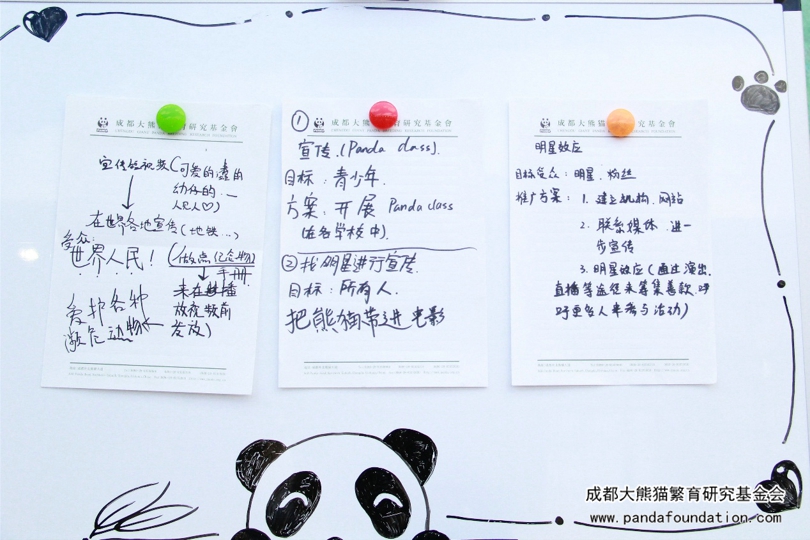 成都大熊猫繁育研究基金會
宣传短视频(可爱的,蠢的
幼仔的...
人民人♡)
在世界各地宣传(地铁...)
受众:
世界人民!
(做点亿企物)
手册
爱护各种
濒危动物
放夜牧前
发放)
成都大熊猫繁育研究基金會
①
宣传.(Panda class).
目标:青少年.
方案:开展 Panda class
(在各学校中).
②找明星进行宣传.
目标:所有人.
把熊猫带进电影
成都大熊猫繁育研究基金會
明星效应
目标受众:明星、粉丝
推广方案:1. 建立机构、网站
2. 联系媒体、进一
步宣传
3. 明星效应(通过演出、
直播等途径来筹集善款,呼
吁更多人来参与活动)
成都大熊猫繁育研究基金会
www.pandafoundation.com